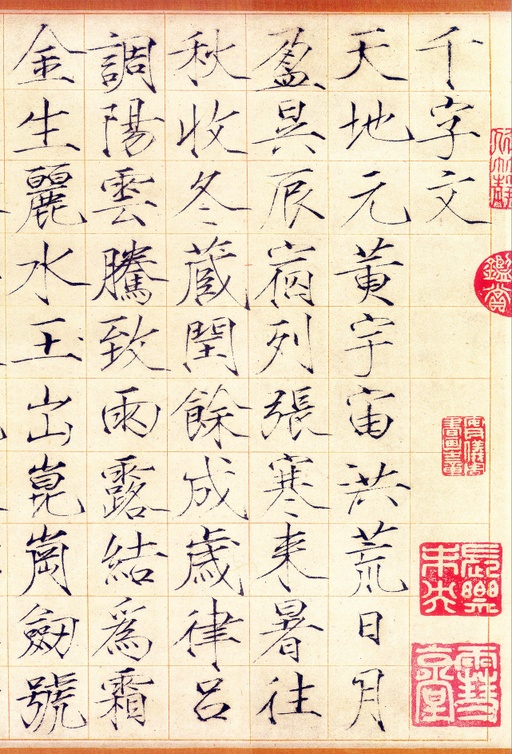 鑑賞
長樂未央
千字文
天地元黃宇宙洪荒日月
盈昃辰宿列張寒来暑往
秋收冬蔵閏餘成歲律呂
調陽雲騰致雨露結爲霜
金生麗水玉出崑崗劒號